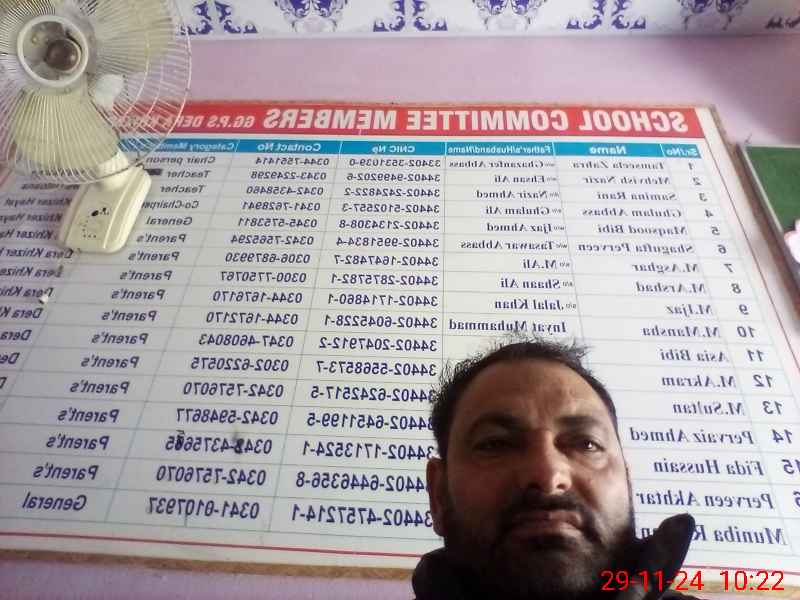 SCHOOL COMMITTEE MEMBERS GG.P.S DERA KHIZER
Sr./No Name Father's/Husband/Name CNIC No Contact No Category Member
1 Tanseela Zahra w/o Ghazanfer Abbass 34402-3531039-0 0347-7551414 Chair person
2 Mehvish Nazir w/o Ehsan Ali 34402-9499202-6 0343-2249298 Teacher
3 Samina Rani d/o Nazir Ahmed 34402-2424822-2 0342-4358460 Teacher
4 Ghulam Abbass s/o Ghulam Ali 34402-5102557-3 0341-7628941 Co-Chairper Khizer Hayat
5 Maqsood Bibi w/o Ijaz Ahmed 34402-2134308-8 0345-5753811 General Khizer Hayat
6 Shagufta Perveen w/o Tasawar Abbass 34402-9951834-4 0342-7565294 Parent's Dera Khizer
7 M.Asghar s/o M.Ali 34402-1647482-7 0306-6879930 Parent's Dera Khize
8 M.Arshad s/o Shaan Ali 34402-2875782-1 0300-7750767 Parent's Dera Khiz
9 M.Ijaz s/o Jalal Khan 34402-1714860-1 0344-1676170 Parent's Dera Khi
10 M.Mansha Inyat Muhammad 34402-6045228-1 0344-1672170 Parent's Dera K
11 Asia Bibi 34402-2047912-2 0347-4608043 Parent's Dera
12 M.Akram 34402-5568573-7 0302-6220575 Parent's
13 M.Sultan 34402-6242517-5 0342-7576070 Parent's
14 Pervaiz Ahmed 34402-6451199-5 0342-5948677 Parent's
15 Fida Hussain 34402-1713524-1 0348-4375665 Parent's
Perveen Akhtar 34402-6446356-8 0342-7576070 Parent's
Muniba 34402-4757214-1 0341-0107937 General
29-11-24 10:22